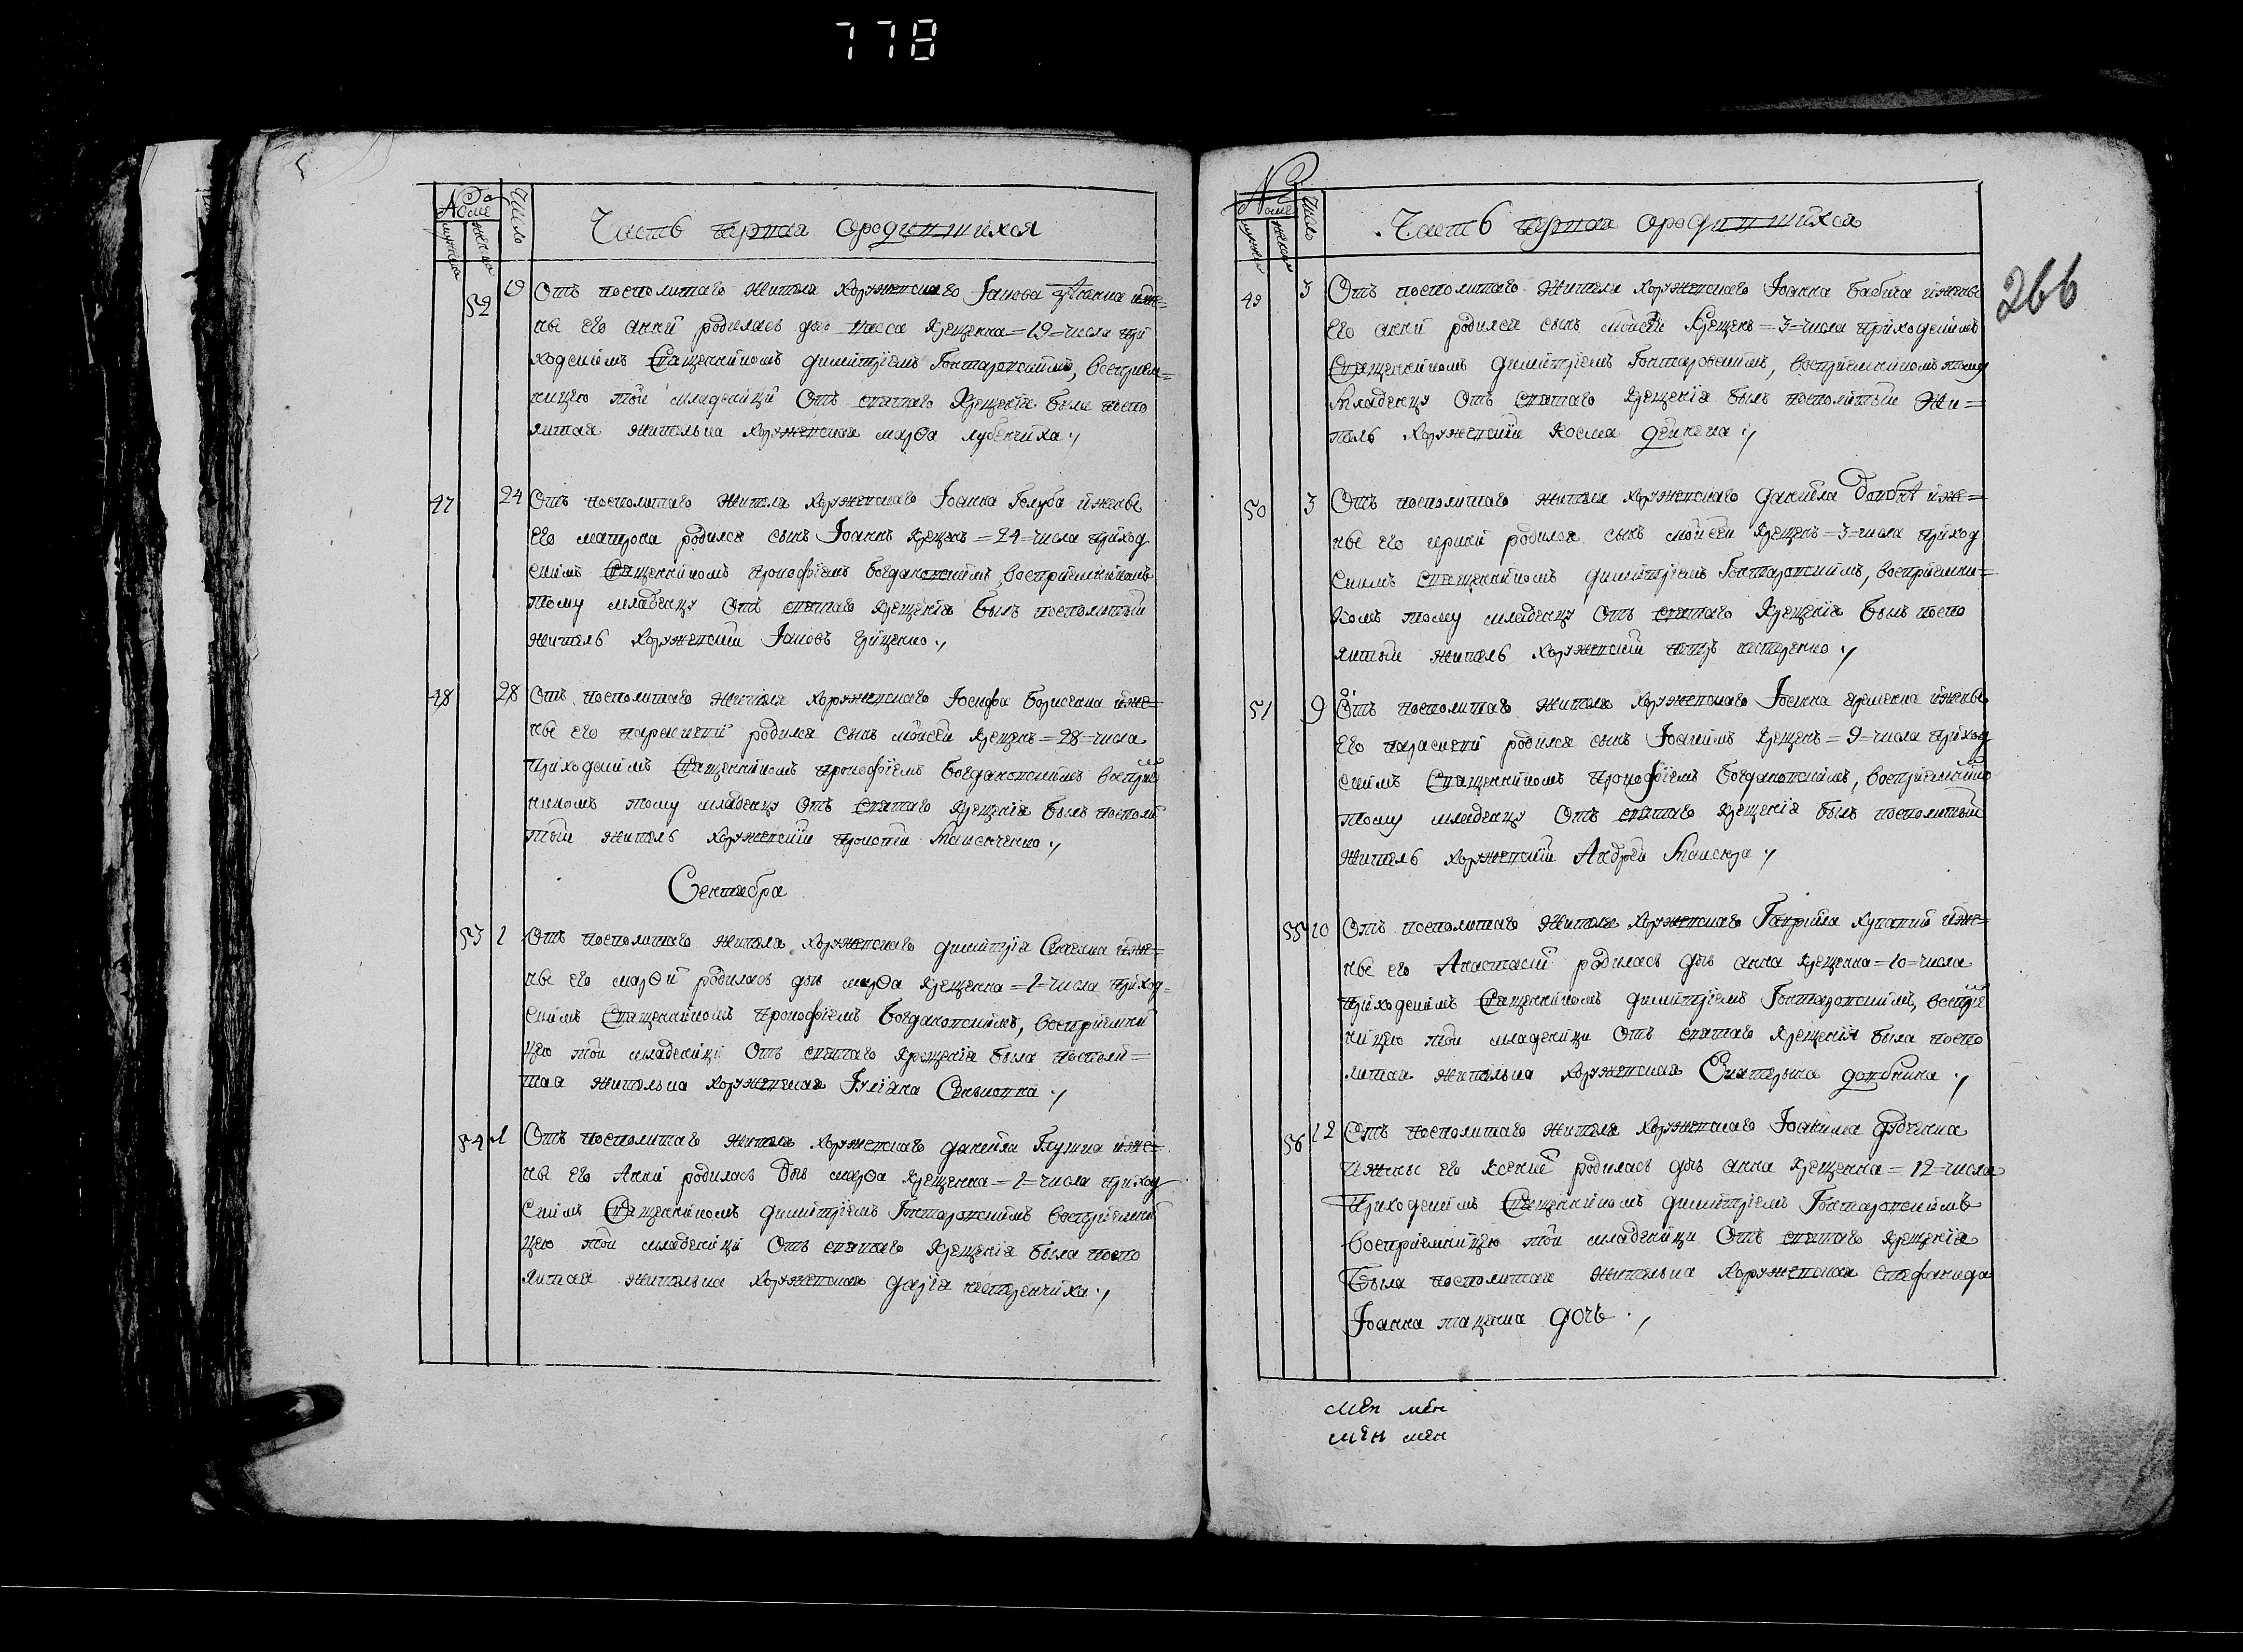 778
Nо
Число
мужеска
женска
Часть первая ородившихся
52 19 Отъ посполитаго жителя хоружевскаго Іакова и же=
не его анни родилась дчь васса крещенна = 19 = числа при
ходскимъ Священникомъ димитріемъ Гонтаровскимъ, восприем=
ницею той младеници Отъ святаго крещенія была поспо
литая жителька хоружевская марѳа лубенчиха
47 24 Отъ посполитаго жителя хоружевскаго Іоанна Голуба и жены
его матрона родился сынъ Іоаннъ крещенъ = 24 = числа приход
скимъ Священникомъ прокофіемъ богдановскимъ, восприемникомъ
тому младенцу Отъ святаго крещенія былъ посполитый
житель хоружевскій Іаковъ грищенко
48 28 Отъ посполитаго жителя хоружевскаго Іосифа борисенка и же=
не его параскеви родился сынъ мойсей крещенъ = 28 = числа
приходскимъ Священникомъ прокофіемъ богдановскимъ восприем
никомъ тому младенцу Отъ святаго крещенія былъ посполи
тый житель хоружевскій
Сентября
53 1 Отъ посполитаго жителя хоружевскаго димитрія и же=
не его марѳи родилась дчь марѳа крещенна = 1 = числа приход=
скимъ Священникомъ прокофіемъ богдановскимъ, восприемни
цею той младеници Отъ святаго крещенія была посполи=
тая жителька хоружевская Іуліяна
54 1 Отъ посполитаго жителя хоружевскаго даніила и же=
не его Анни родилась дчь марѳа крещенна = 1 = числа приход
скимъ Священникомъ димитріемъ Гонтаровскимъ восприемни
цею той младеници Отъ святаго крещенія была поспо
литая жителька хоружевская дарія нестеренчиха
Nо
Число
мужеска
женска
Часть первая ородившихся
266
49 3 Отъ посполитаго жителя хоружевскаго Іоанна бабича и жены
его анни родился сынъ мойсей крещенъ = 3 = числа приходскимъ
Священникомъ димитріемъ Гонтаровскимъ, восприемникомъ тому
младенцу Отъ святаго крещенія былъ посполитый жи=
тель хоружевскій косма дейнека
50 3 Отъ посполитаго жителя хоружевскаго даніила довбні и же=
не его ирини родился сынъ мойсей крещенъ = 3 = числа приход
скимъ священникомъ димитріемъ Гонтаровскимъ, восприемни=
комъ тому младенцу Отъ святаго крещенія былъ поспо
литый житель хоружевскій петръ нестеренко
51 9 Отъ посполитаго жителя хоружевскаго Іоанна и жены
его параскеви родился сынъ Іоакимъ крещенъ = 9 = числа приход
скимъ Священникомъ прокофіемъ богдановскимъ, восприемникомъ
тому младенцу Отъ святаго крещенія былъ посполитый
житель хоружевскій Андрей
55 10 Отъ посполитаго жителя хоружевскаго Гавриила и же=
не его Анастасій родилась дчь анна крещенна = 10 = числа
приходскимъ Священникомъ димитріемъ Гонтаровскимъ, восприе
ницею той младеници Отъ святаго крещенія была поспо
литая жителька хоружевская Екатерина довбнина
56 12 Отъ посполитаго жителя хоружевскаго Іоакима
и жены его ксеніи родилась дчь анна крещенна = 12 = числа
приходскимъ Священникомъ димитріемъ Гонтаровскимъ
восприемницею той младеници Отъ святаго крещенія
была посполитая жителька хоружевская стефанида
Іоанна дочъ
мен мен
мен мен